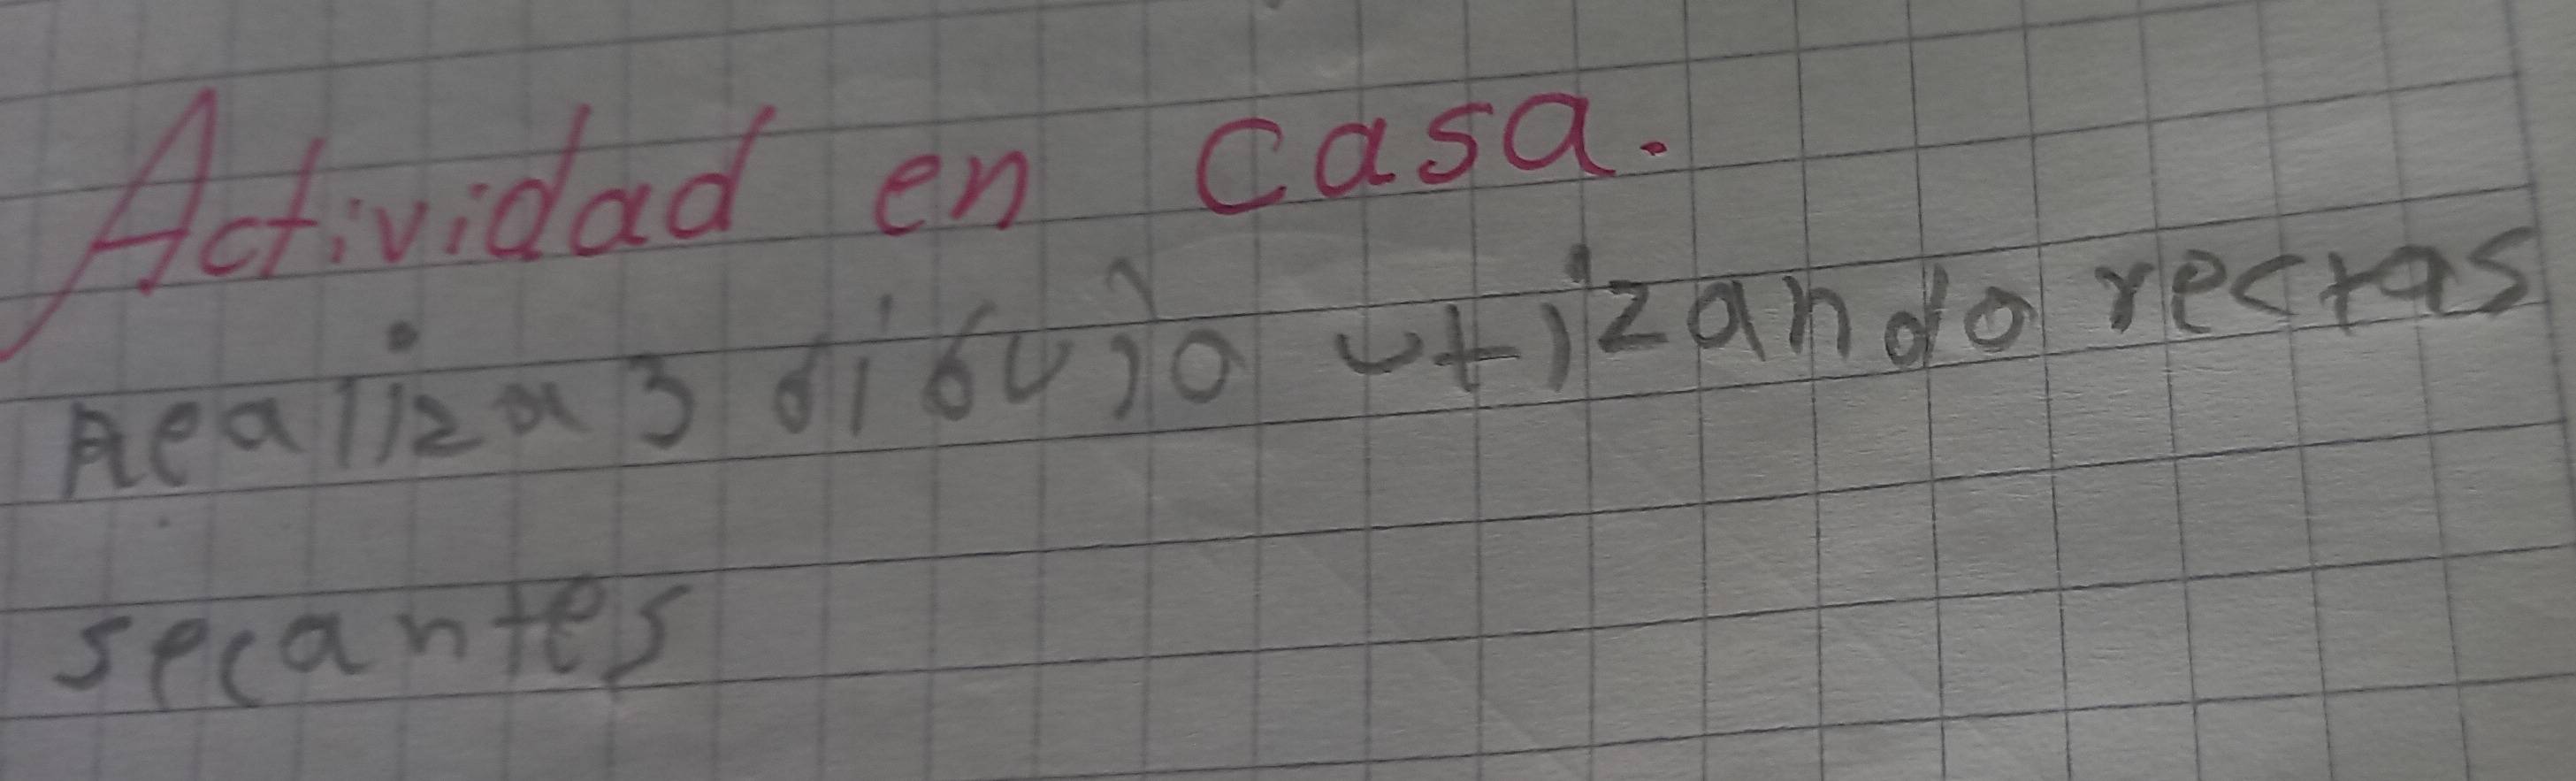 Actividad en casa.
Realiza 3 dibujo utizando rectas
secantes